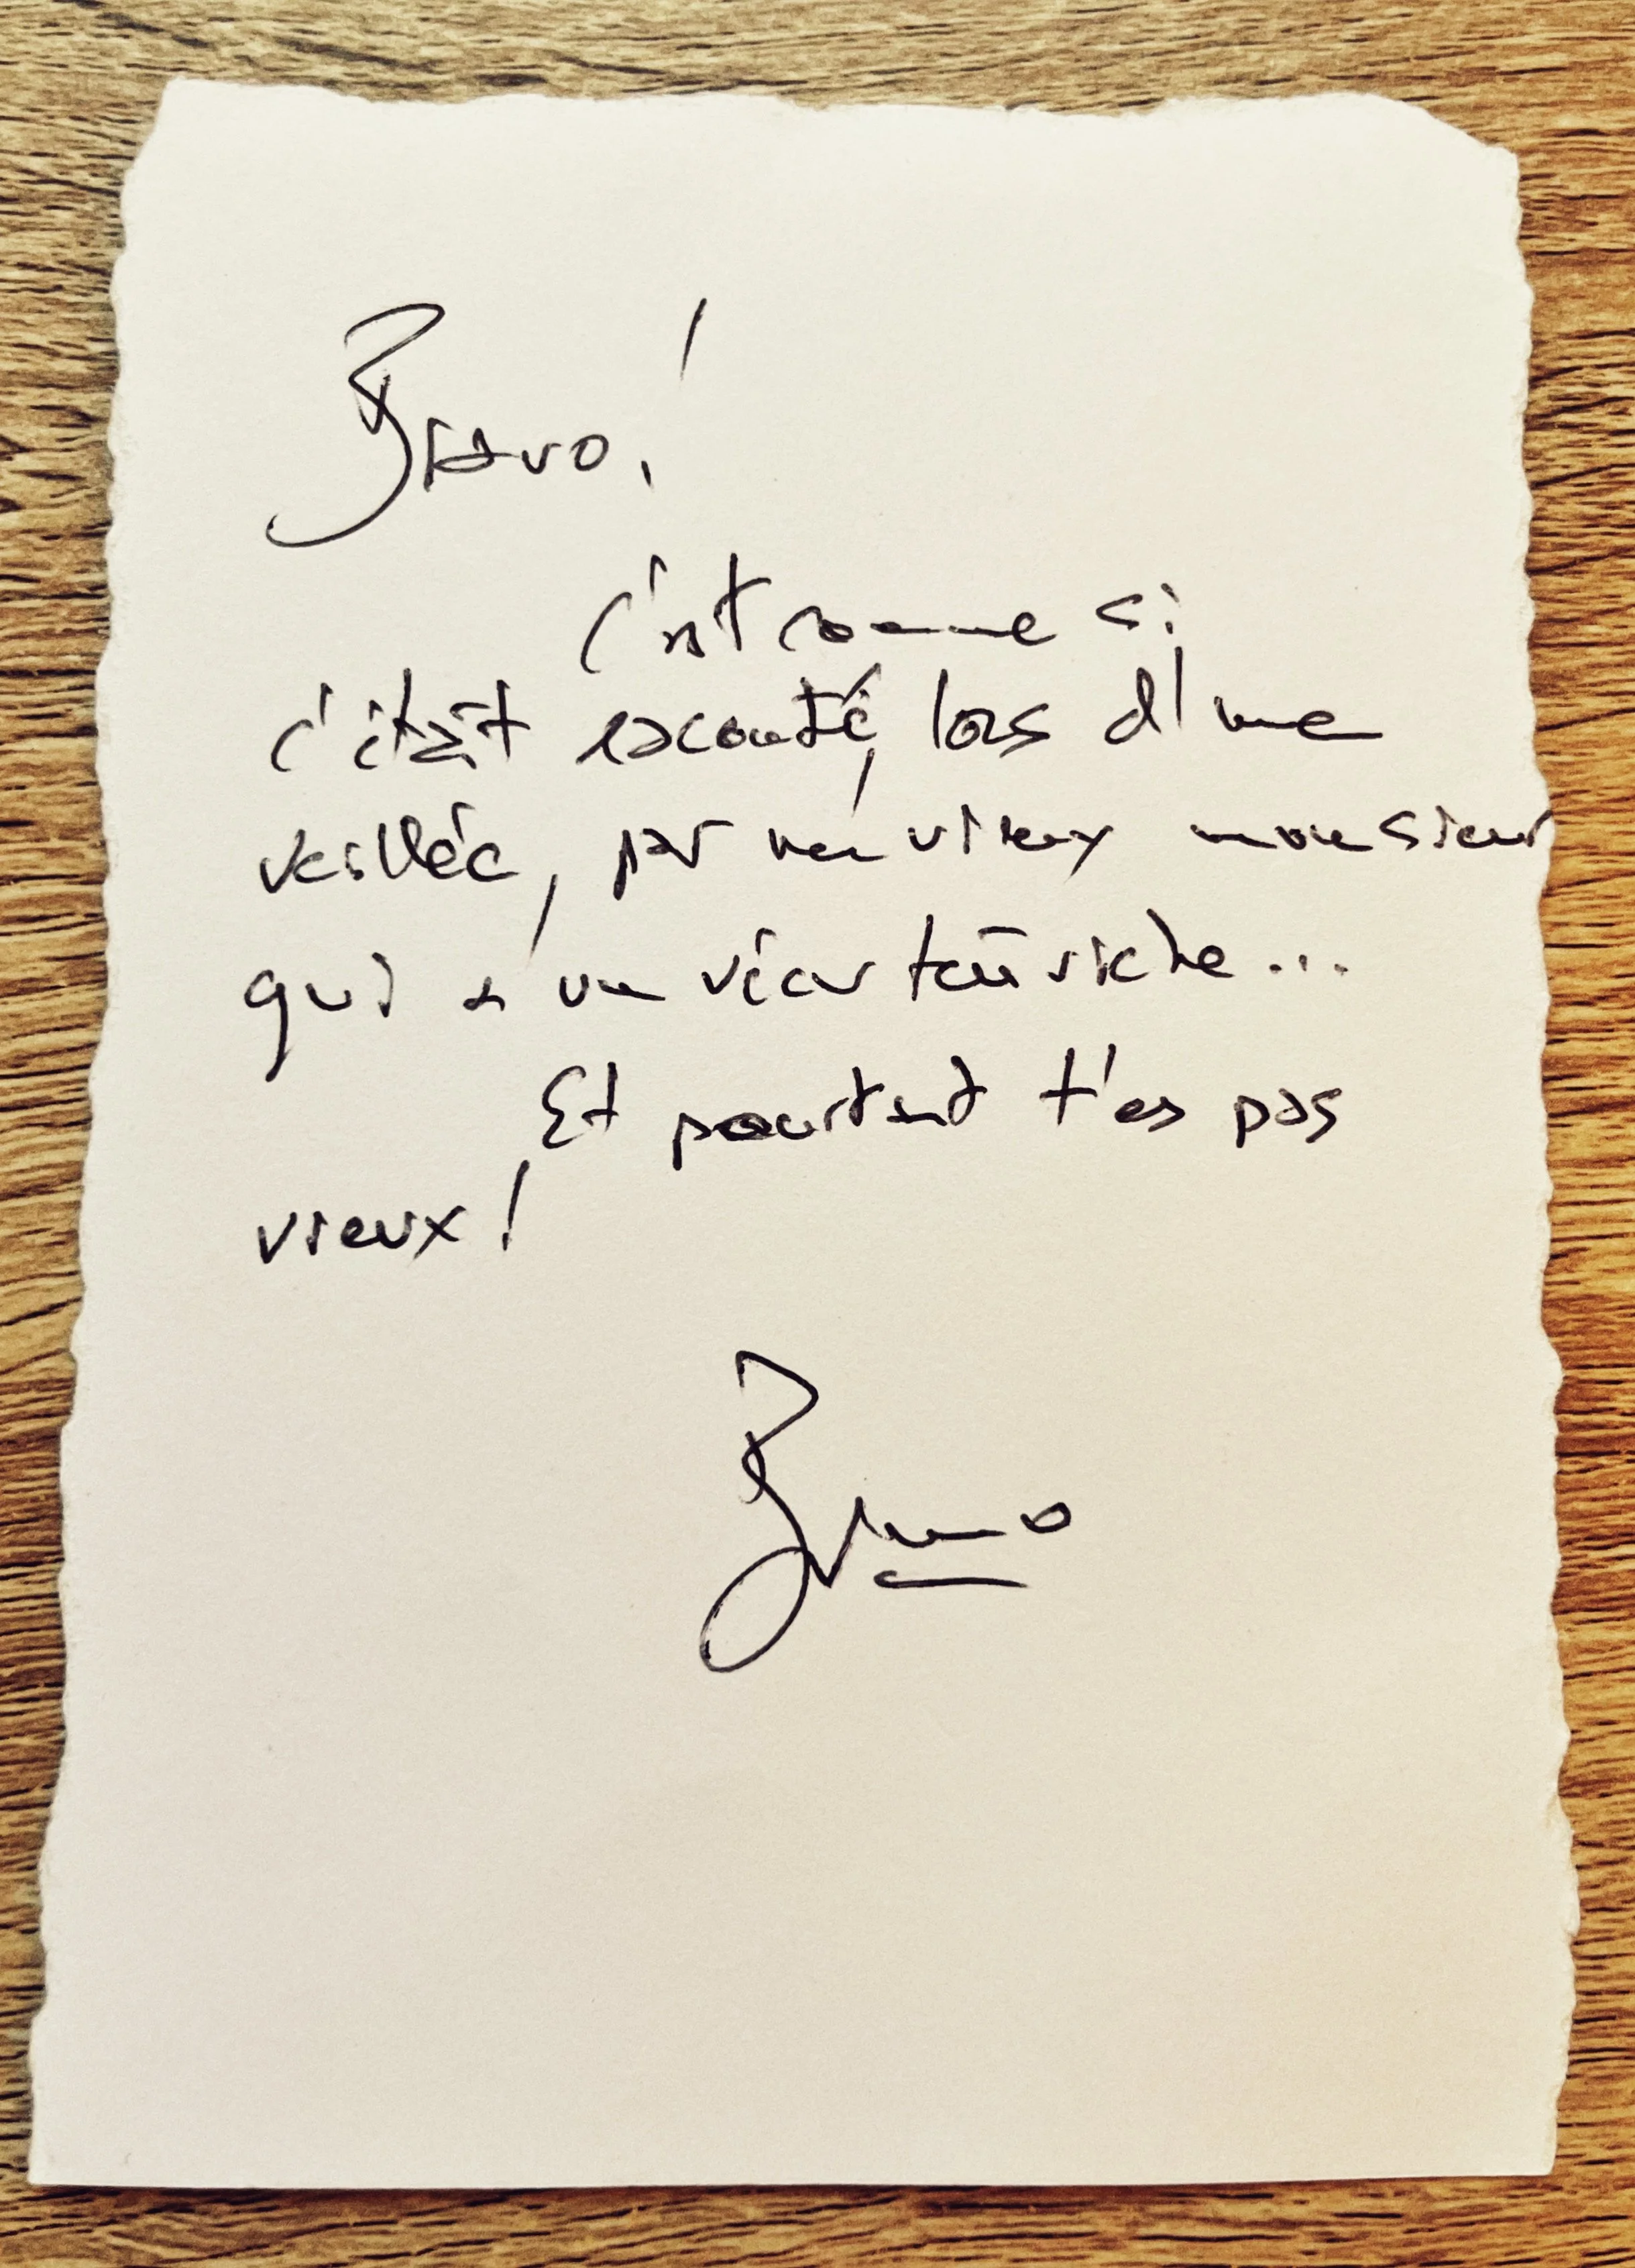 Bravo!
C'est comme si
c'était raconté, lors d'une
veillée, par un vieux monsieur
qui a un vécu très riche...
Et pourtant t'es pas
vieux!
Bruno